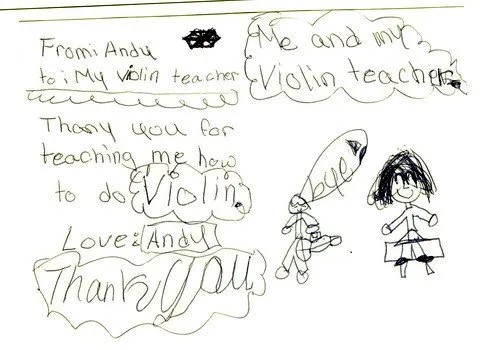 From: Andy
to: My violin teacher
Thany you for
teaching me how
to do Violin
Love: Andy
Thank you
Me and my
Violin teacher
bye